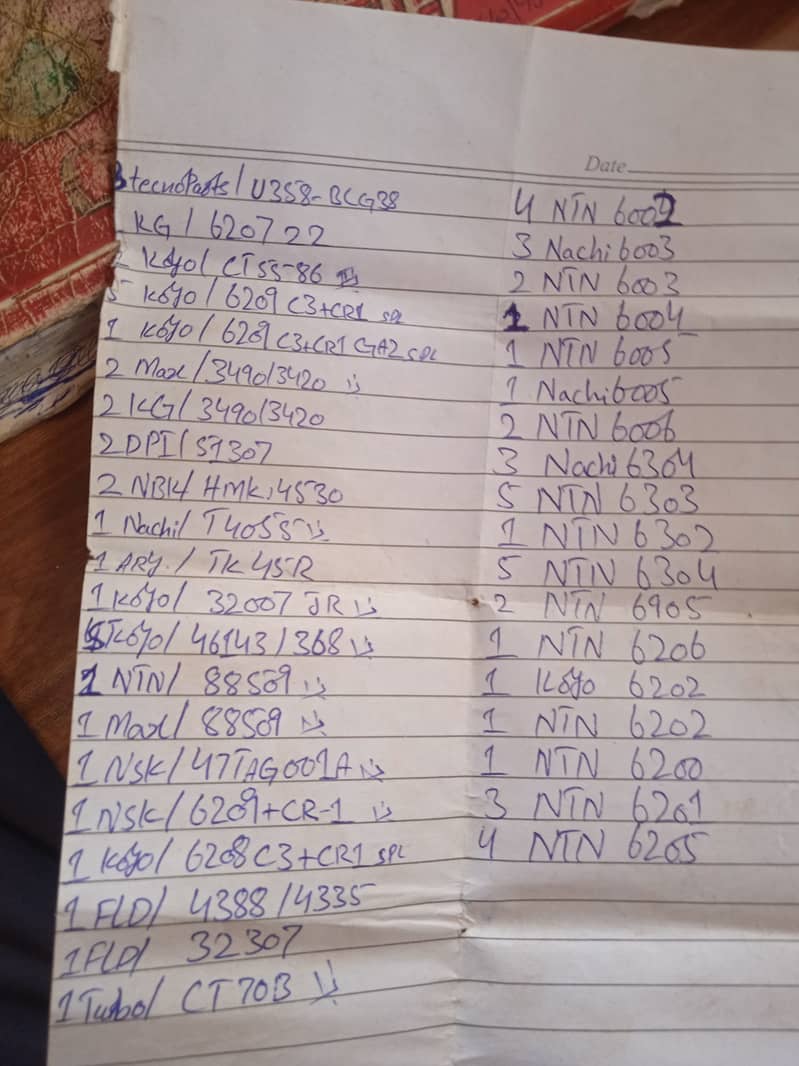 Date
3 tecnoParts / U358-BCG38
KG / 620722
2 Koyo / CT55-86
5 Koyo / 6209 C3+CR1 SPL
1 Koyo / 6209 C3+CR1 GA2 SPL
2 Max / 3490/3420
2 KG / 3490/3420
2 DPI / 57307
2 NBK / HMK,4530
1 Nachi / T4055
1 ARY. / TK45R
1 Koyo / 32007 JR
Koyo / 46143 / 368
1 NTN / 88509
1 Max / 88509
1 NSK / 47TAG001A
1 NSK / 6209+CR-1
1 Koyo / 6208 C3+CR1 SPL
1 FLD / 4388 / 4335
1 FLD / 32307
1 Turbo / CT70B
4 NTN 6002
3 Nachi 6003
2 NTN 6003
1 NTN 6004
1 NTN 6005
1 Nachi 6005
2 NTN 6006
3 Nachi 6304
5 NTN 6303
1 NTN 6302
5 NTN 6304
2 NTN 6905
1 NTN 6206
1 Koyo 6202
1 NTN 6202
1 NTN 6200
3 NTN 6201
4 NTN 6205